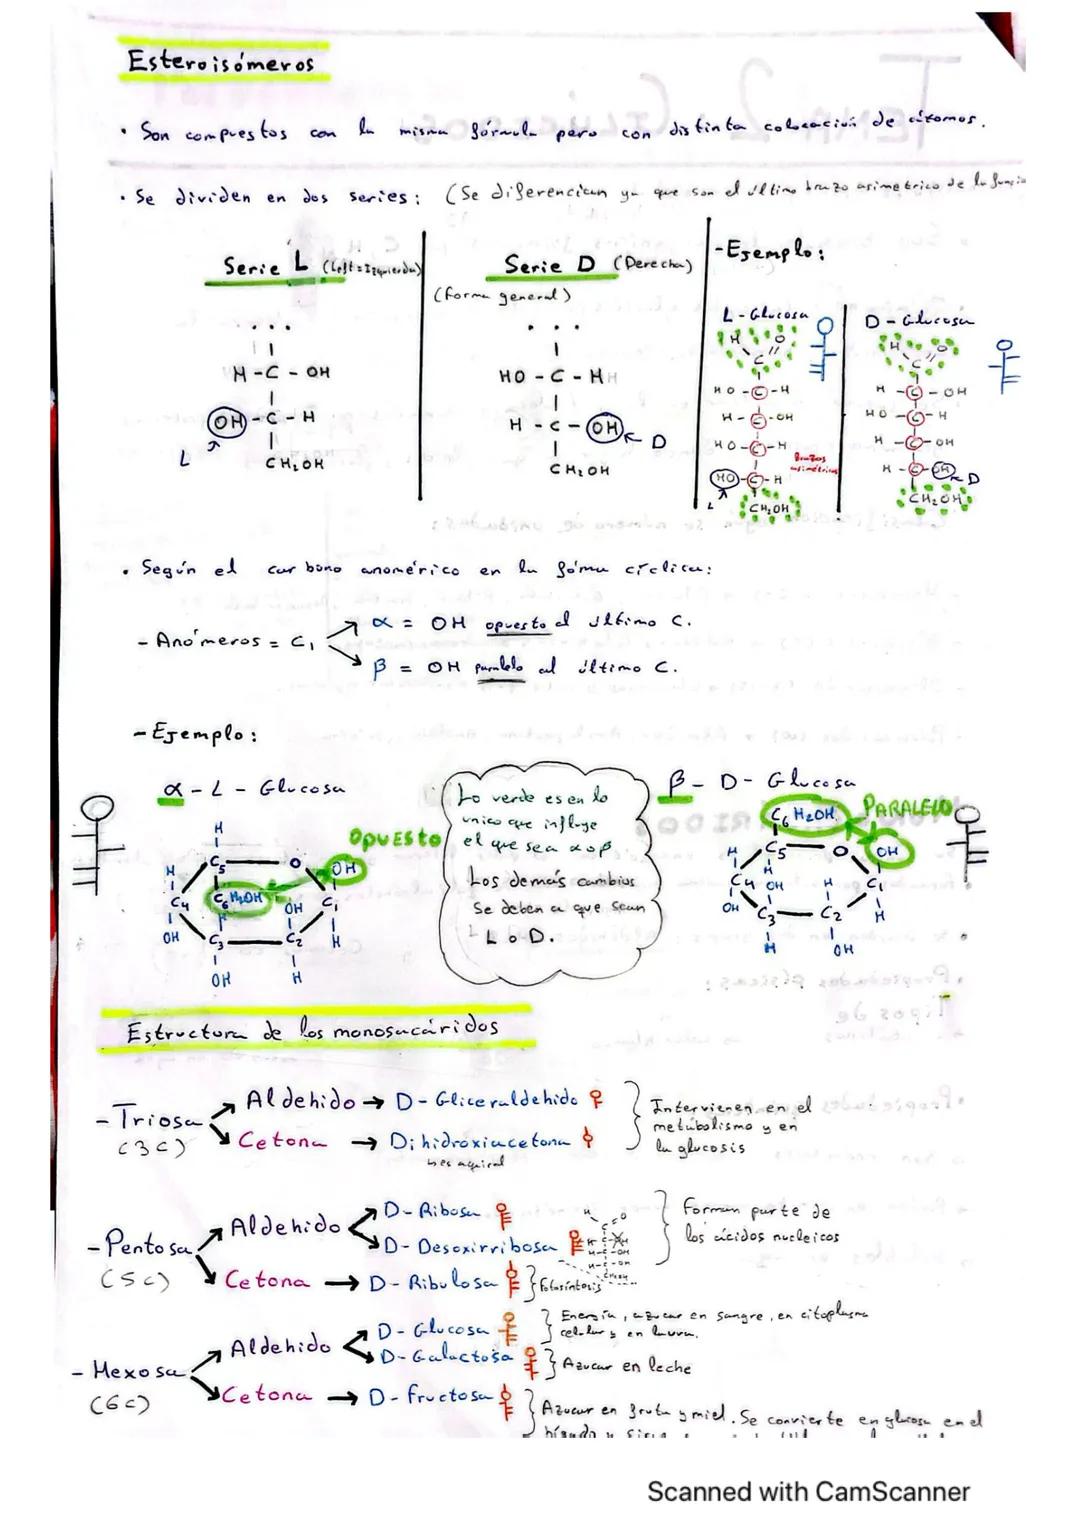 Esteroisómeros
• Son compuestos con la misma fórmula pero con distinta colocación de átomos.
• Se dividen en dos series: (Se diferencian ya que son el último brazo asimétrico de la
Serie L (Left = Izquierda)
...
H - C - OH
OH - C - H
L
CH₂OH
Serie D (Derecha)
(Forma general)
...
HO - C - H
H - C - OH
D
CH₂OH
- Ejemplo:
L - Glucosa
H O
C
HO - C - H
H - C - OH
HO - C - H
Brazos asimétricos
HO - C - H
L
CH₂OH
D - Glucosa
H O
C
H - C - OH
HO - C - H
H - C - OH
H - C - OH
D
CH₂OH
• Según el carbono anomérico en la fórma cíclica:
- Anómeros = C₁
α = OH opuesto al último C.
β = OH paralelo al último C.
- Ejemplo:
α - L - Glucosa
OPUESTO
H
C₅ O OH
H
C₄ C₆ H₂OH OH C₁
OH C₃ C₂ H
OH H
Lo verde es en lo
unico que influye
el que sea α o β
Los demás cambios
Se deben a que sean
L o D.
β - D - Glucosa
C₆ H₂OH PARALELO
H C₅ O OH
H
C₄ OH H C₁
OH C₃ C₂ H
H OH
Estructura de los monosacáridos
- Triosa
(3C)
Aldehido → D - Gliceraldehido
Cetona → Dihidroxiacetona
es aquiral
Intervienen en el
metabolismo y en
la glucosis
- Pentosa
(5C)
Aldehido
D - Ribosa
D - Desoxirribosa
Forman parte de
los ácidos nucleicos
Cetona → D - Ribulosa
Fotosíntesis
- Hexosa
(6C)
Aldehido
D - Glucosa
Energía, azucar en sangre, en citoplasma
celular y en la uva.
D - Galactosa
Azucar en leche
Cetona → D - fructosa
Azucar en fruta y miel. Se convierte en glucosa en el
Scanned with CamScanner